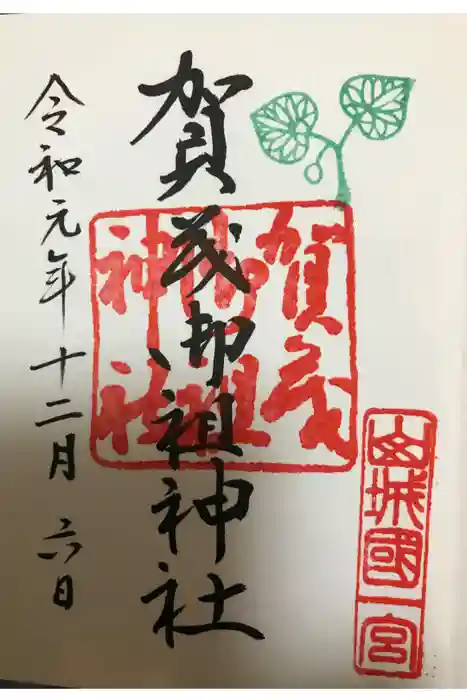 山城國一宮
賀茂
御祖
神社
賀茂御祖神社
令和元年十二月六日